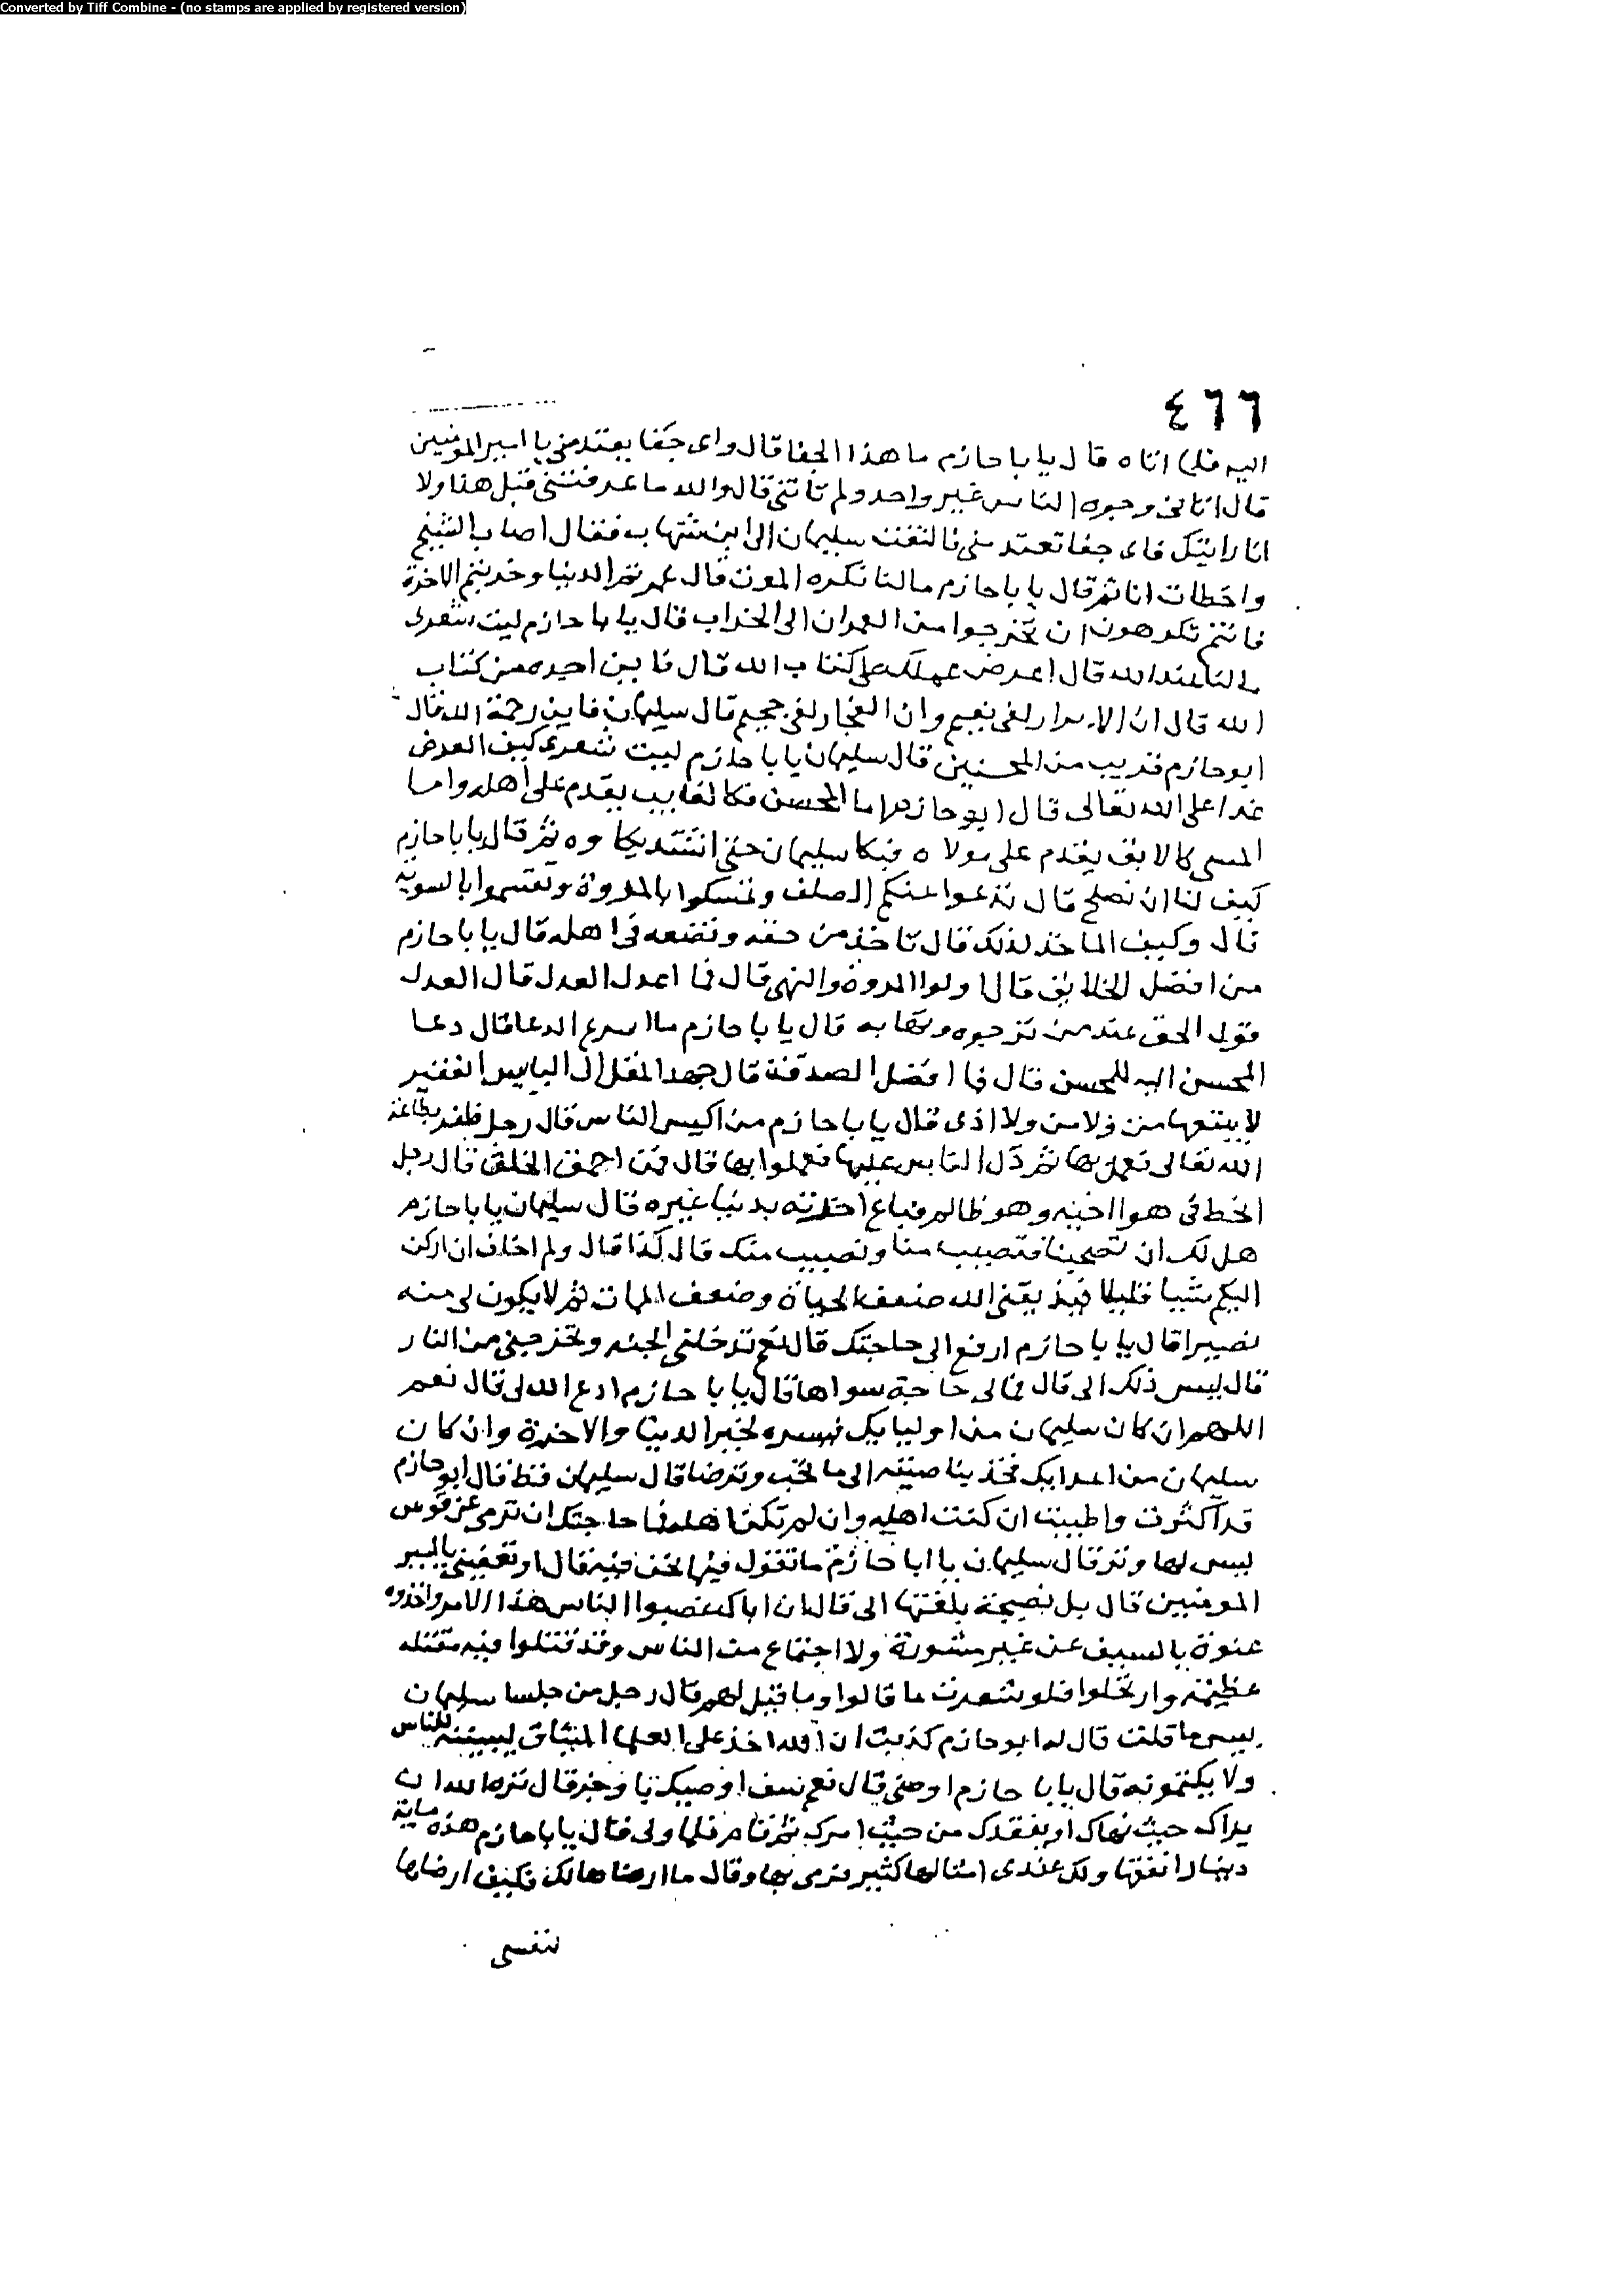 Converted by Tiff Combine - (no stamps are applied by registered version)
٤٦٦
اليه فلما اتاه قال يا با حازم ما هذا الجفا قال واى جفا يعتد منى يا امير المومنين
قال اتانى وجوه الناس غير واحد ولم تاتنى قال والله ما عرفتنى قبل هذا ولا
انا رايتك فاى جفا تعتد منى فالتفت سليمان الى ابن شهاب فقال اصاب الشيخ
واخطات انا ثم قال يا با حازم مالنا نكره الموت قال عمرتم الدنيا وخربتم الاخرة
فانتم تكرهون ان تخرجوا من العمران الى الخراب قال يا با حازم ليت شعرى
ما لنا عند الله قال اعرض عملك على كتاب الله قال فاين اجده من كتاب
الله قال ان الابرار لفى نعيم وان الفجار لفى جحيم قال سليمان فاين رحمة الله قال
ابو حازم قريب من المحسنين قال سليمان يا با حازم ليت شعرى كيف العرض
غدا على الله تعالى قال ابو حازم اما المحسن فكالغايب يقدم على اهله واما
المسى كالابق يقدم على مولاه فبكا سليمان حتى اشتد بكاوه ثم قال يا با حازم
كيف لنا ان نصلح قال تدعوا عنكم الصلف وتمسكوا بالمروة وتقسموا بالسوية
قال وكيف الماخذ لذلك قال تاخذ من حقه وتضعه فى اهله قال يا با حازم
من افضل الخلايق قال اولوا المروة والنهى قال فما اعدل العدل قال العدل
قول الحق عند من ترجوه وتخابه قال يا با حازم ما اسرع الدعا قال دعا
المحسن اليه للمحسن قال فما افضل الصدقة قال جهد المقل الى البايس الفقير
لا يتبعها من ولا اذى قال يا با حازم من اكيس الناس قال رجل ظفر بطاعة
الله تعالى فعمل بها ثم دل الناس عليها فعملوا بها قال فمن احمق الخلق قال رجل
انحط فى هوا اخيه وهو ظالم فباع اخرته بدنيا غيره قال سليمان يا با حازم
هل لك ان تصحبنا فتصيب منا ونصيب منك قال كذا قال ولم اخاف ان اركن
اليكم شيا قليلا فيذيقنى الله ضعف الحياة وضعف الممات ثم لا يكون لى منه
نصيرا قال يا با حازم ارفع الى حاجتك قال نعم تدخلنى الجنه وتخرجنى من النار
قال ليس ذلك الى قال فما لى حاجة سواها قال يا با حازم ادع الله لى قال نعم
اللهم ان كان سليمان من اوليايك فيسره لخير الدنيا والاخرة وان كان
سليمان من اعدايك فخذ بناصيته الى ما تحب وترضا قال سليمان قط فقال ابو حازم
قد اكثرت واطيبت ان كنت اهله وان لم تكن اهله فما حاجتك ان ترمى عن قوس
ليس لها وتر قال سليمان يا ابا حازم ما تقول فيما نحن فيه قال او تعفينى يا امير
المومنين قال بل نصيحة بلغتها الى قال ان اباك غصبوا الناس هذا الامر واخذوه
عنوة بالسيف عن غير مشورة ولا اجتماع من الناس وقد قتلوا فيه مقتله
عظيمة وارتحلوا فلو شعرت ما قالوا وما قيل لهم قال رجل من جلسا سليمان
ليس ما قلت قال له ابو حازم كذبت ان الله اخذ على العلما الميثاق ليبيننه للناس
ولا يكتمونه قال يا با حازم اوصنى قال نعم سف اوصيك نا وجز قال نزه الله ان
يراك حيث نهاك او يفقدك من حيث امرك ثم قام فلما ولى قال يا با حازم هذه ماية
دينار انفقها ولك عندى امثالها كثير فرمى بها وقال ما ارضاها لك فكيف ارضاها
لنفسى